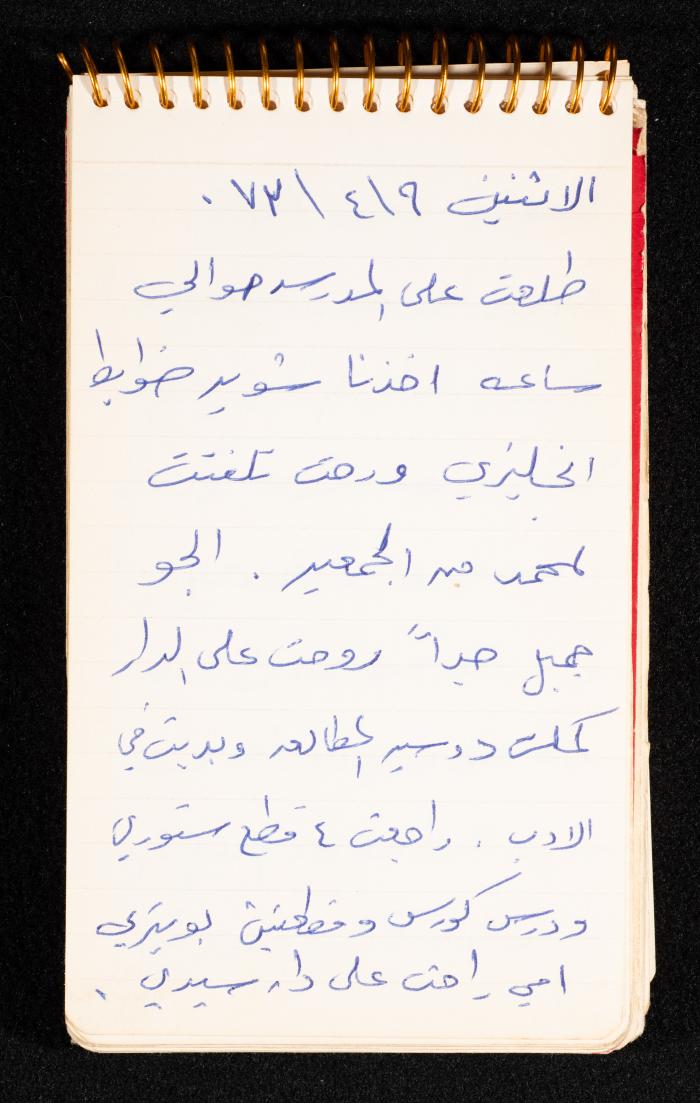 الاثنين ٩\٤\٧٣ .
طلعت على المدرسه حوالي
ساعه اخذنا شوية ضوابط
انجليزي ورحت تلفنت
لمحمد من الجمعيه . الجو
جميل جداً روحت على الدار
كملت دوسيه المطالعه وبديت في
الادب . راجعت ٤ قطع ستوري
ودرس كورس وقطعتين بويتري
امي راحت على دار سيدي .